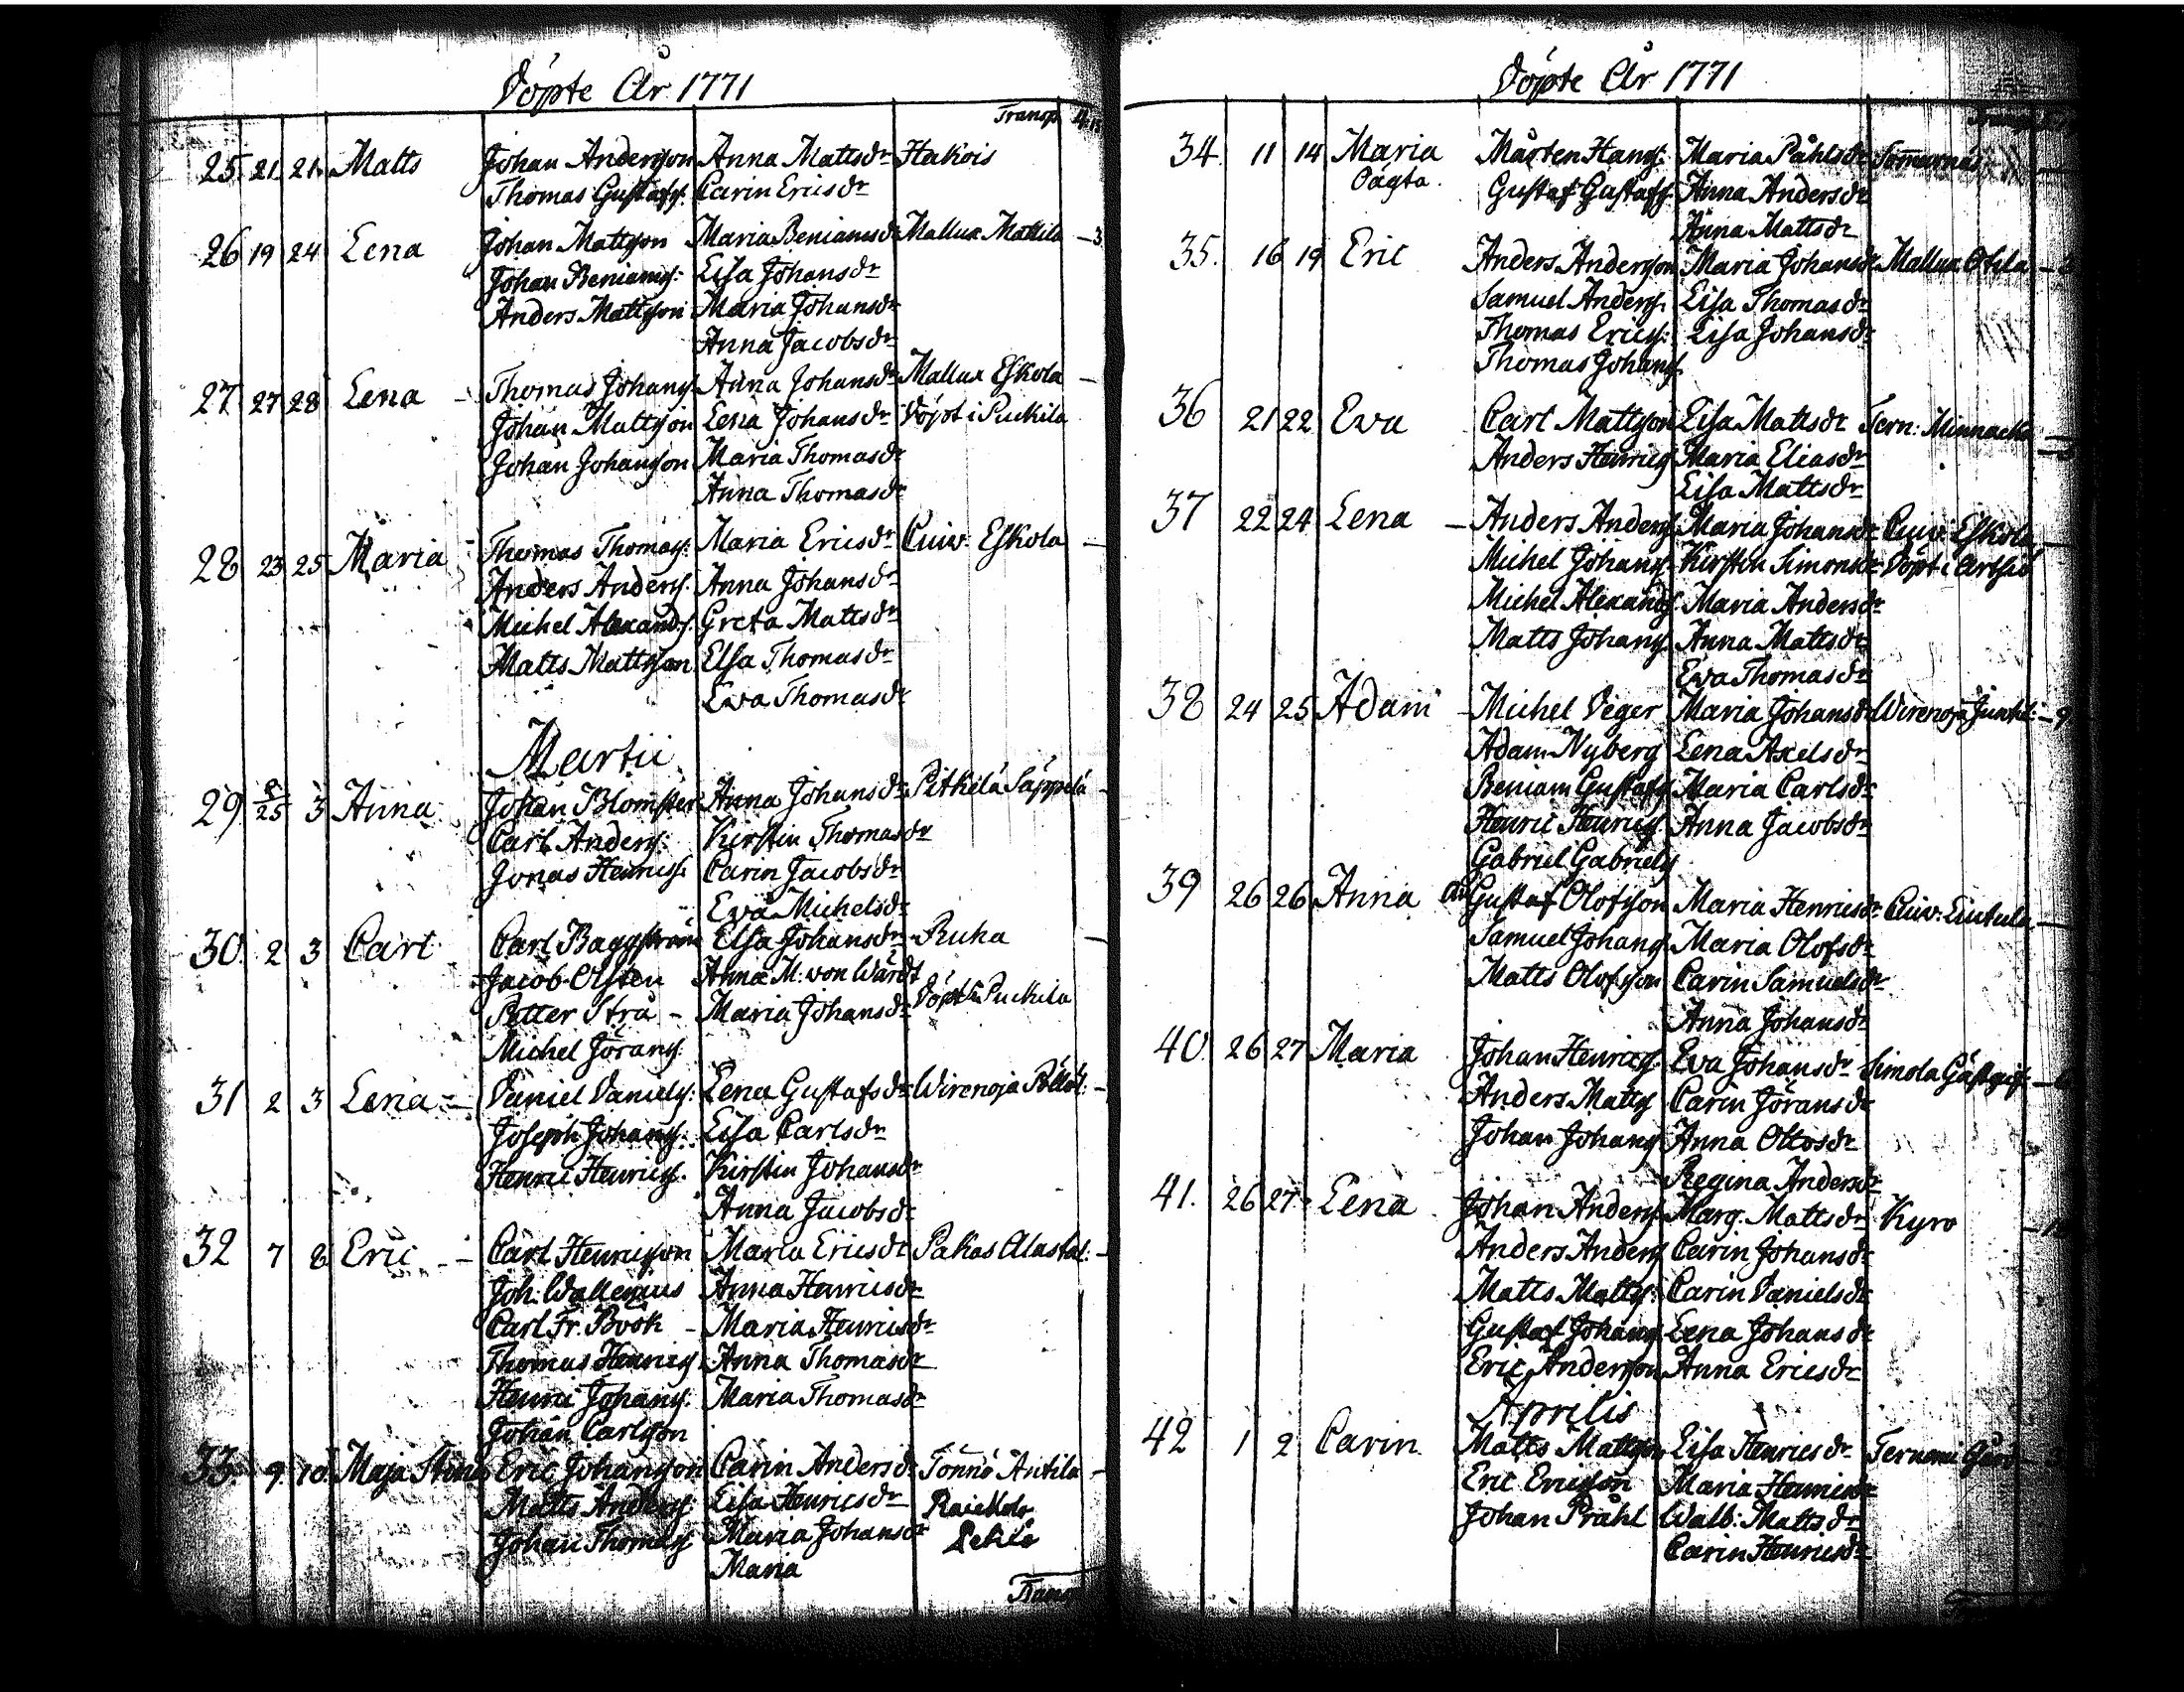 Döpte År 1771
Transp.
25 21 21 Matts Johan Andersson Anna Mattsdr Hakois
Thomas Gustafs. Carin Ericsdr
26 19 24 Lena Johan Mattsson Maria Beniamsdr Mallux Mattila 3
Johan Beniams: Lisa Johansdr
Anders Mattsson Maria Johansdr
Anna Jacobsdr
27 27 28 Lena Thomas Johans. Anna Johansdr Mallux Eskola
Johan Mattsson Lena Johansdr Döpt i Puckila
Johan Johansson Maria Thomasdr
Anna Thomasdr
28 23 25 Maria Thomas Thomas: Maria Ericsdr Cuiv: Eskola
Anders Anders. Anna Johansdr
Michel Alexands. Greta Mattsdr
Matts Mattsson Elsa Thomasdr
Eva Thomasdr
Martii
29 25 3 Anna Johan Blomster Anna Johansdr Pitkilä Säppälä
Carl Anders: Kirstin Thomasdr
Jonas Henrics. Carin Jacobsdr
Eva Michelsdr
30. 2 3 Carl Carl Baggström Elsa Johansdr Ruha
Jacob Olsten Anna M: von Wärdt
Petter Strå Maria Johansdr Döpt i Puckila
Michel Jörans:
31 2 3 Lena Daniel Daniels: Lena Gustafsdr Wirenoja
Joseph Johans: Lisa Carlsdr
Henric Henrics. Kirstin Johansdr
Anna Jacobsdr
32 7 8 Eric Carl Henricsson Maria Ericsdr Pakas Alastal:
Joh. Wallenius Anna Henricsdr
Carl Fr. Book Maria Henricsdr
Thomas Henrics Anna Thomasdr
Henric Johans: Maria Thomasdr
Johan Carlsson
33. 9. 10 Maja Stina Eric Johansson Carin Andersdr Tönnö Antila
Matts Anders: Lisa Henricsdr
Johan Thomas Maria Johansdr
Maria
Transp
Döpte År 1771
34. 11 14 Maria Mårten Hans: Maria Påhlsdr Sommarnäs
Oägta. Gustaf Gustafs. Anna Andersdr
Anna Mattsdr
35. 16 19 Eric Anders Andersson Maria Johansdr Mallux Otila
Samuel Anders. Lisa Thomasdr
Thomas Erics: Lisa Johansdr
Thomas Johans.
36 21 22 Eva Carl Mattsson Lisa Mattsdr Tern:
Anders Henrics Maria Eliasdr
Lisa Mattsdr
37 22 24 Lena Anders Anders. Maria Johansdr Cuiv: Eskola
Michel Johans. Kirstin Simonsdr Döpt i Artsiö
Michel Alexands. Maria Andersdr
Matts Johans. Anna Mattsdr
Eva Thomasdr
38 24 25 Adam Michel Veger Maria Johansdr Wirenoja
Adam Nyberg Lena Axelsdr
Beniam Gustafs Maria Carlsdr
Henric Henrics. Anna Jacobsdr
Gabriel Gabriels
39 26 26 Anna Gustaf Olofsson Maria Henricsdr Cuiv:
Samuel Johans. Maria Olofsdr
Matts Olofsson Carin Samuelsdr
Anna Johansdr
40. 26 27 Maria Johan Henrics. Eva Johansdr Simola Gästgif:
Anders Matts Carin Jöransdr
Johan Johans Anna Ottosdr
Regina Andersdr
41. 26 27 Lena Johan Anders. Marg. Mattsdr Kyro
Anders Anders Carin Johansdr
Matts Matts: Carin Danielsdr
Gustaf Johans Lena Johansdr
Eric Andersson Anna Ericsdr
Aprilis
42 1 2 Carin. Matts Mattsson Lisa Henricsdr
Eric Ericsson Maria Henricsdr
Johan Prähl Walb: Mattsdr
Carin Henricsdr